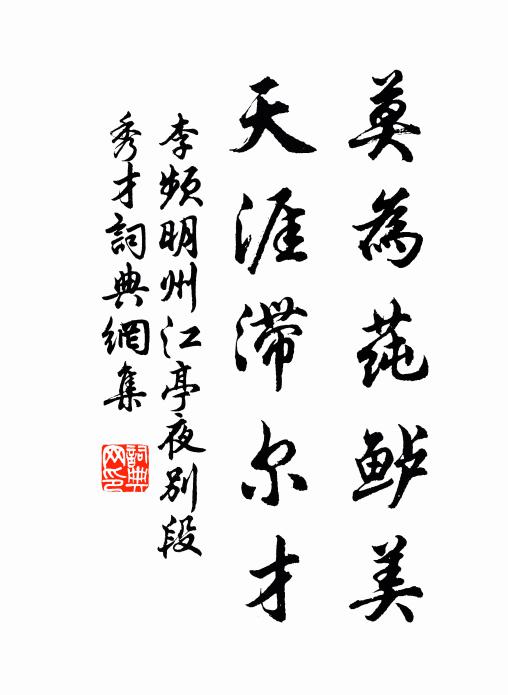 莫為莼鲈美
天涯滯尔才
李频明州江亭夜别段
秀才詞典網集
詞典网印